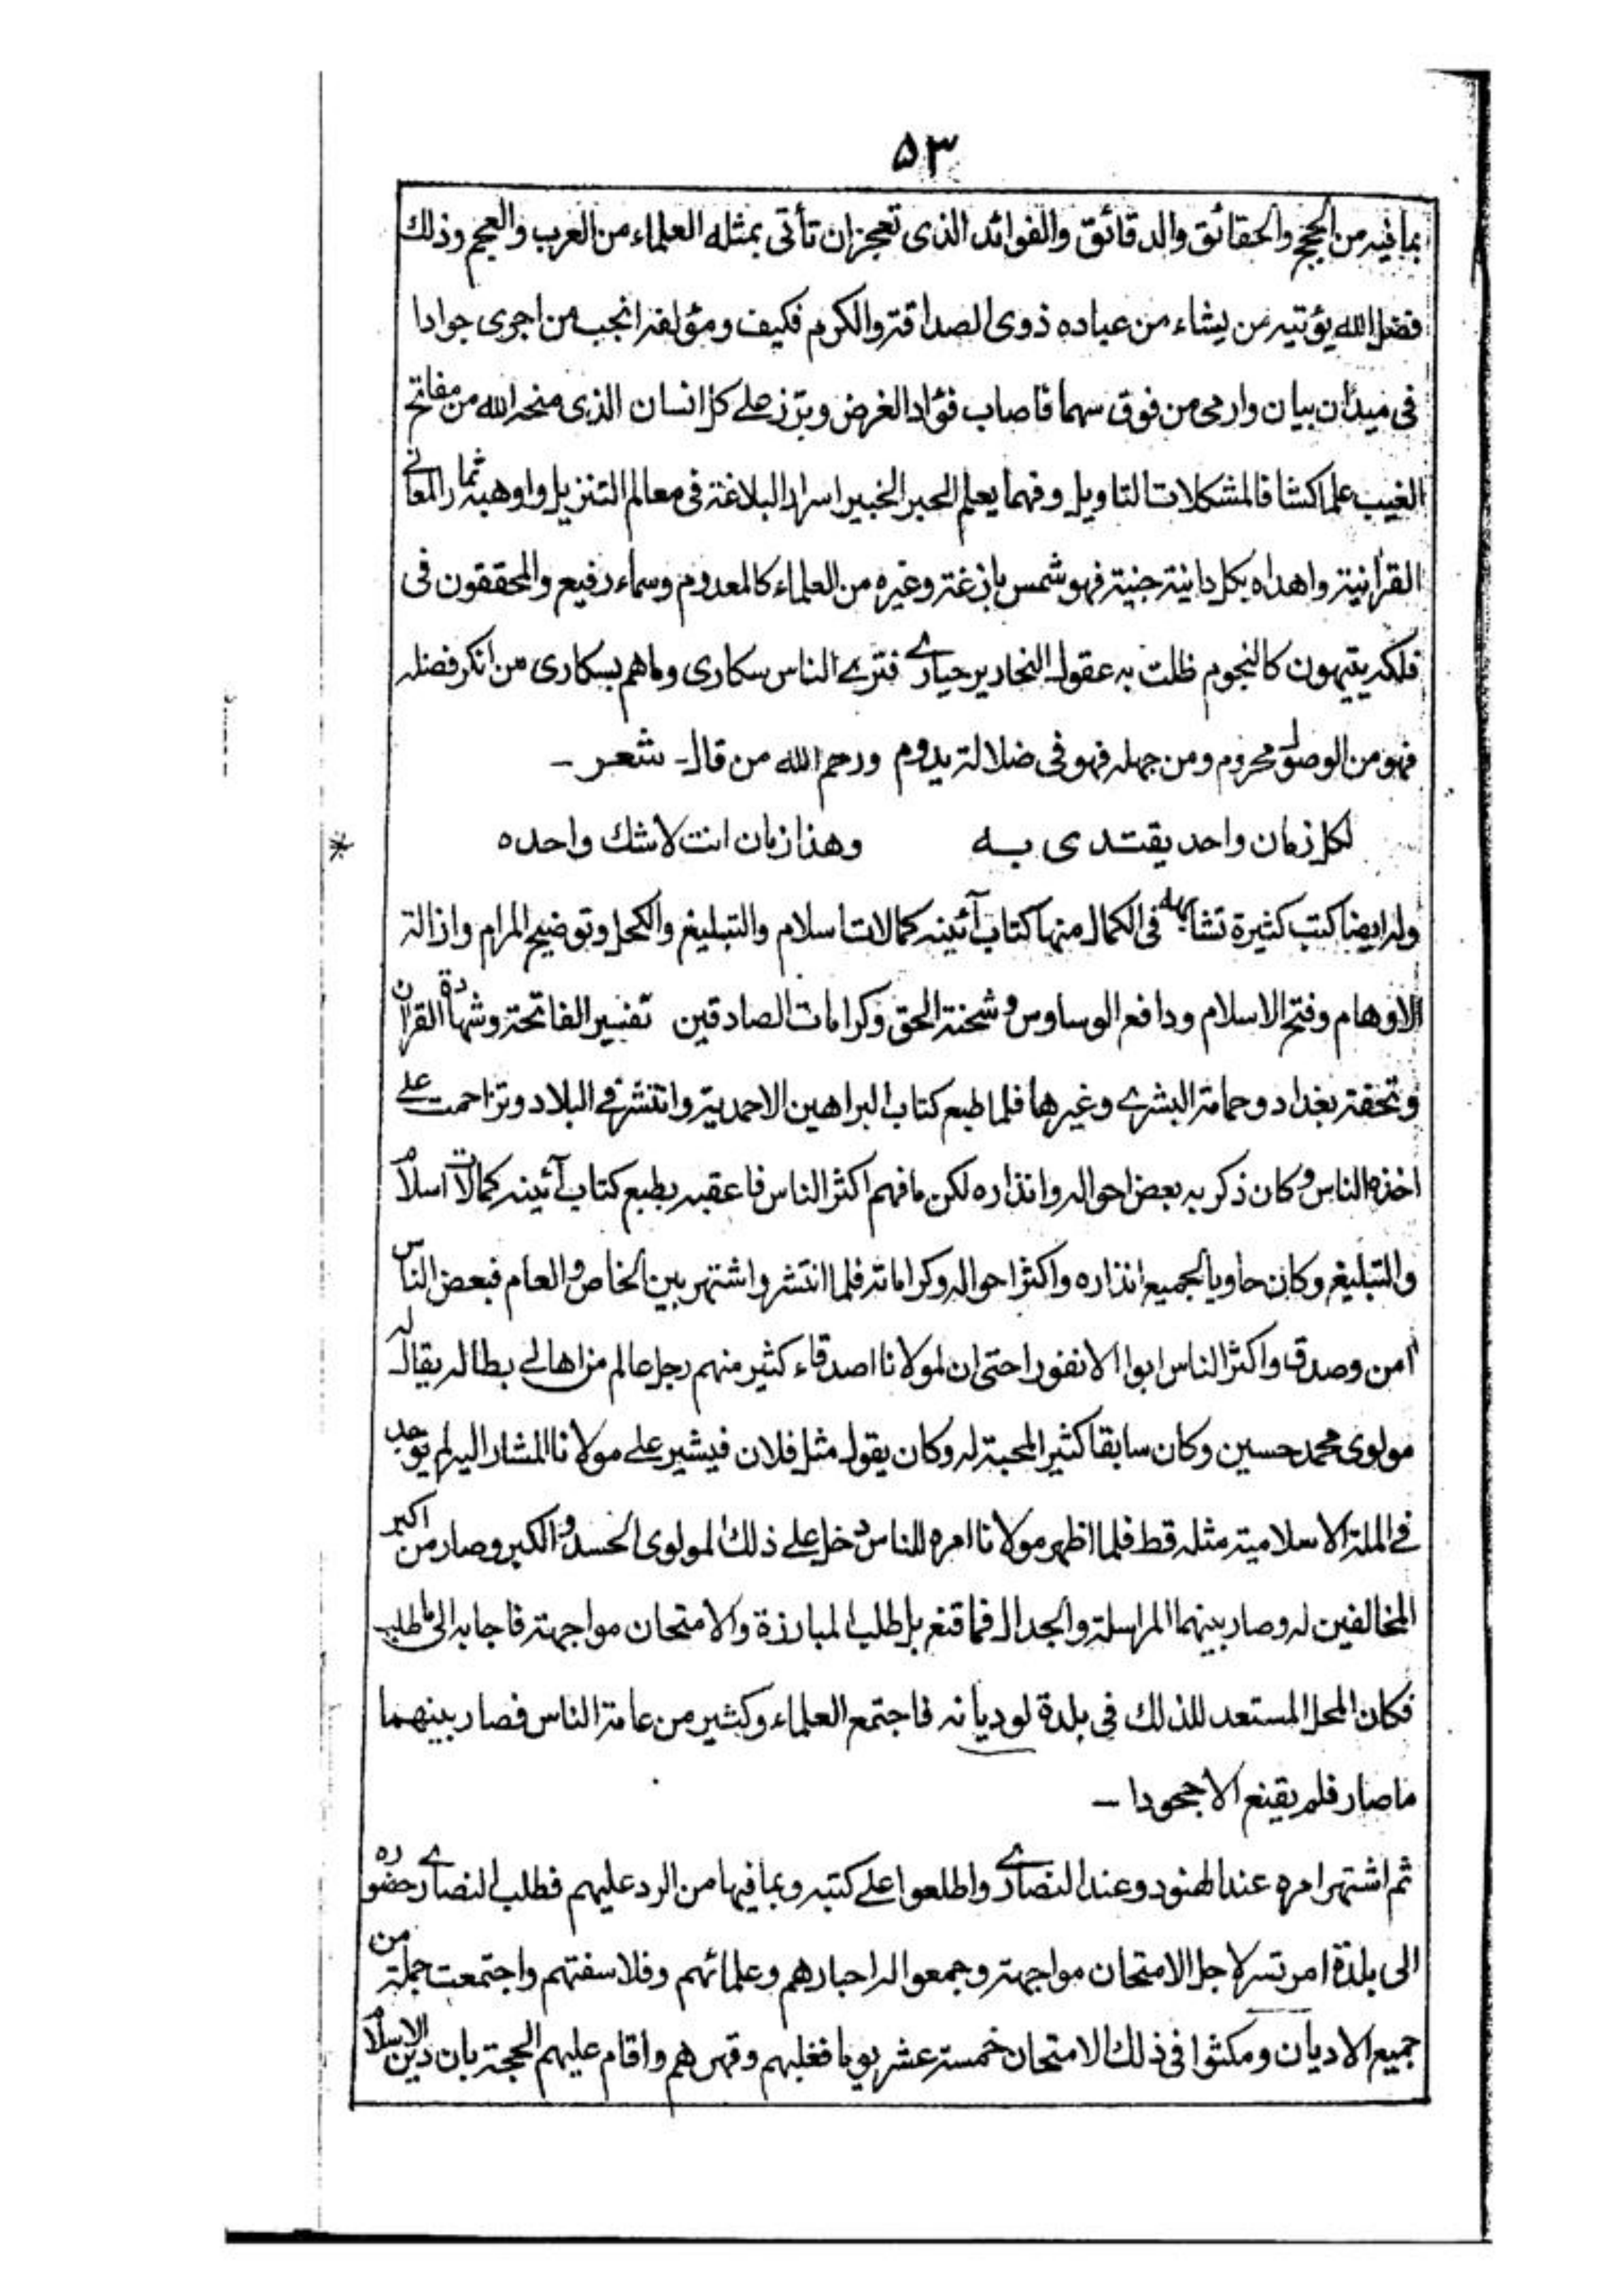 ۵۳
بما فيه من الحجج والحقائق والدقائق والفوائد الذى تعجز ان تأتى بمثله العلماء من العرب والعجم وذلك
فضل الله يؤتيه من يشاء من عباده ذوى الصداقة والكرم فكيف ومؤلفه انجب من اجرى جوادا
فى ميدان بيان وارمى من فوق سهما فاصاب فؤاد الغرض وبرز على كل انسان الذى منحه الله من مفاتح
الغيب علما كشافا لمشكلات التاويل وفهما يعلم الحبر الخبير اسرار البلاغة فى معالم التنزيل واوهبه ثمار المعانے
القرانية واهداه بكل دانية جنية فهو شمس بازغة وغيره من العلماء كالمعدوم وسماء رفيع والمحققون فى
فلكه يتيهون كالنجوم ظلت به عقول النحارير حيارے فترے الناس سكارى وما هم بسكارى من انكر فضله
فهو من الوصول محروم ومن جهله فهو فى ضلالة يدوم ورحم الله من قال - شعر -
لكل زمان واحد يقتدى به وهذا زمان انت لا شك واحده
وله ايضا كتب كثيرة تشابهه فى الكمال منها كتاب آئينه كمالات اسلام والتبليغ والكحل وتوضيح المرام وازالة
الاوهام وفتح الاسلام ودافع الوساوس وشحنة الحق وكرامات الصادقين تفسير الفاتحة وشهادة القران
وتحفة بغداد وحمامة البشرے وغيرها فلما طبع كتاب البراهين الاحمدية وانتشر فے البلاد وتزاحمت علے
اخذه الناس وكان ذكر به بعض احواله وانذاره لكن ما فهم اكثر الناس فاعقبه بطبع كتاب آئينه كمالات اسلام
والتبليغ وكان حاويا لجميع انذاره واكثر احواله وكراماته فلما انتشر واشتهر بين الخاص والعام فبعض الناس
امن وصدق واكثر الناس ابوا الا نفورا حتى ان لمولانا اصدقاء كثير منهم رجل عالم من اهالے بطاله يقال له
مولوى محمد حسين وكان سابقا كثير المحبة له وكان يقول مثل فلان فيشير علے مولانا المشار اليه لم يوجد
فے الملة الاسلامية مثله قط فلما اظهر مولانا امره للناس دخل علے ذلك المولوى الحسد والكبر وصار من اكبر
المخالفين له وصار بينهما المراسلة والجدال فما قنع بل طلب المبارزة والامتحان مواجهة فاجابه الى ما طلب
فكان المحل المستعد للذلك فى بلدة لوديانه فاجتمع العلماء وكثير من عامة الناس فصار بينهما
ما صار فلم يقنع الا جحودا -
ثم اشتهر امره عند الهنود وعند النصارے واطلعوا علے كتبه وبما فيها من الرد عليهم فطلب النصارے حضوره
الى بلدة امرتسر لاجل الامتحان مواجهة وجمعوا له احبارهم وعلمائهم وفلاسفتهم واجتمعت جملة من
جميع الاديان ومكثوا فى ذلك الامتحان خمسة عشر يوما فغلبهم وقهرهم واقام عليهم الحجة بان دين الاسلام